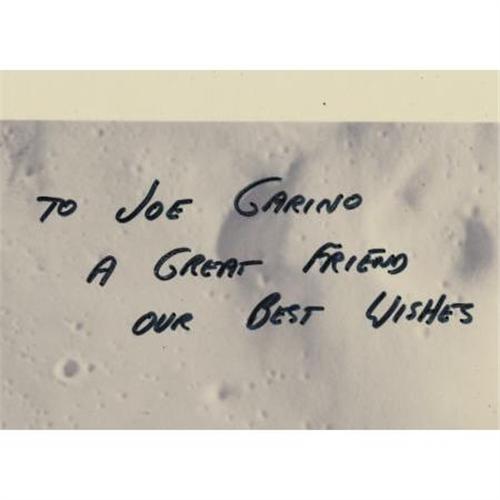 TO JOE GARINO
A GREAT FRIEND
OUR BEST WISHES